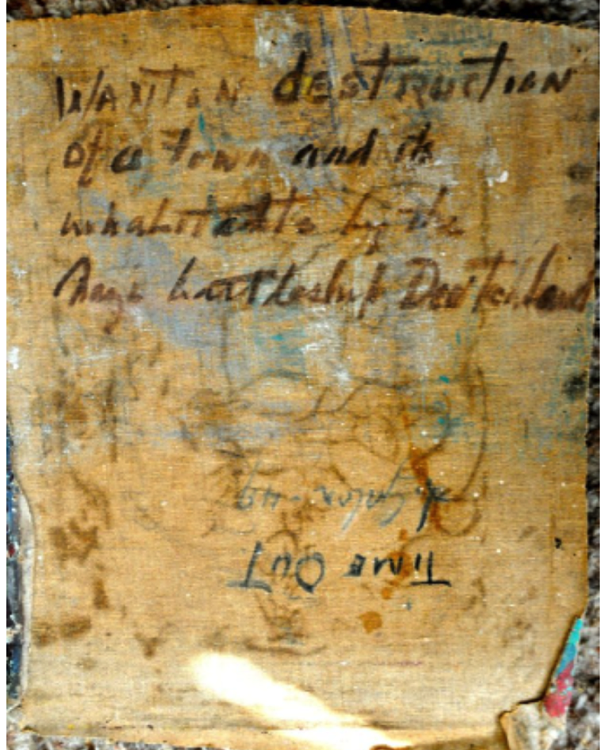 WANTON destRuctION
of a town and its
inhabitants by the
Nazi battleship Deutchland
TIME OUT
-49